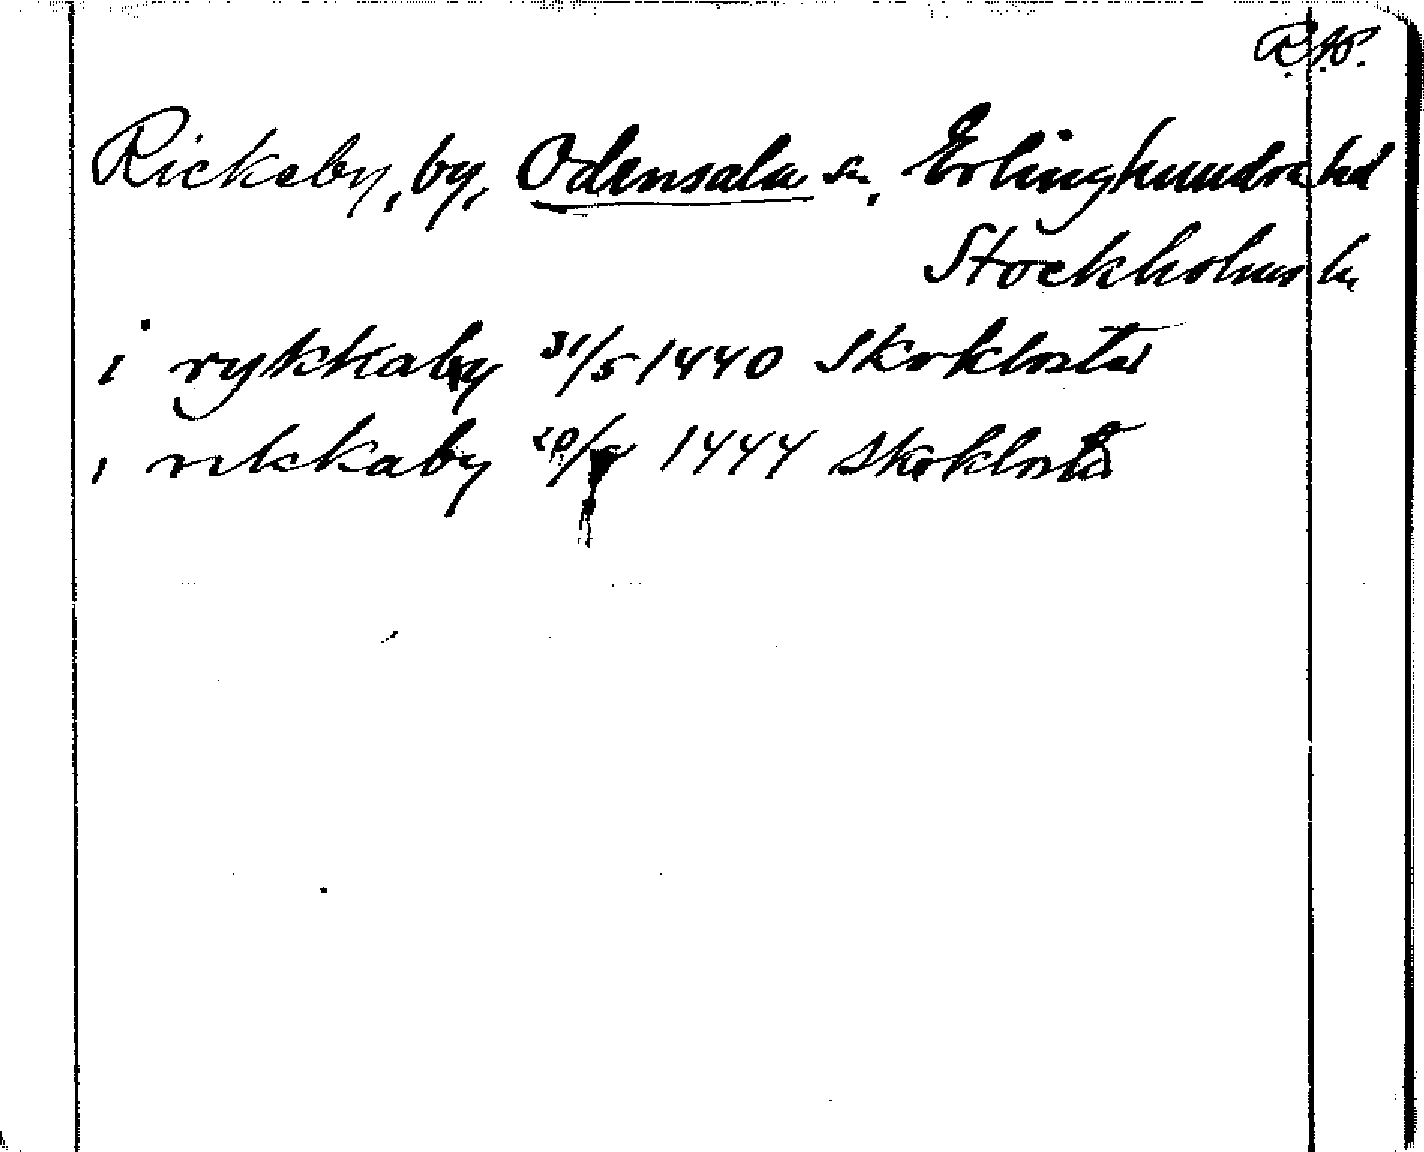 Rickeby, by, Odensala sn, Erlinghundra hd
Stockholms ln
i rykkaby 31/5 1440 Skokloster
i rikkaby 1444 Skokloster